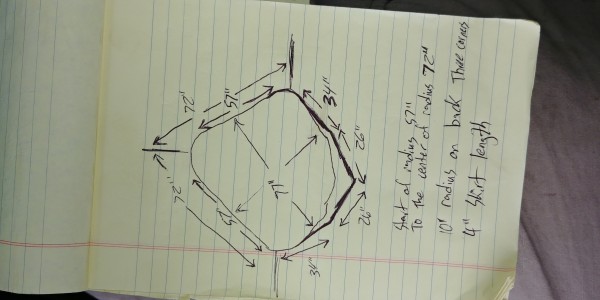 72"
57"
34"
26"
72"
57"
77"
26"
34"
Start of radius 57"
To the center of radius 72"
10" radius on back Three corners
4" Skirt length